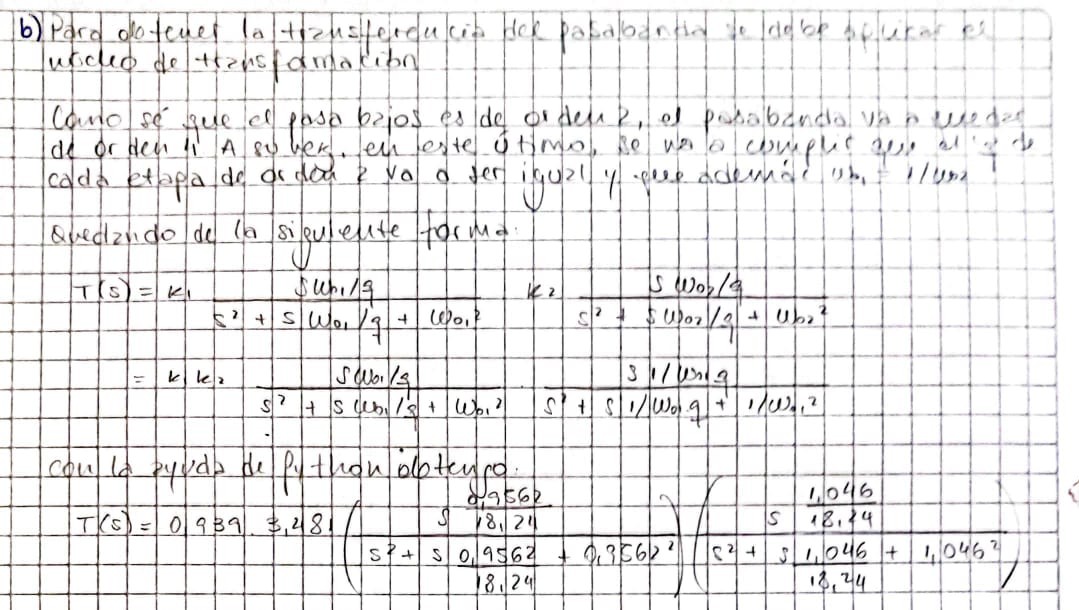 b) Para obtener la transferencia del pasabanda se debe aplicar el
núcleo de transformación
Como sé que el pasa bajos es de orden 2, el pasabanda va a quedar
de orden 4 A su vez, en este útimo, se va a cumplir que el q de
cada etapa de orden 2 va a ser igual y que además ω01 = 1/ω02
Quedando de la siguiente forma:
T(s) = k1 (s ω01/q) / (s² + s ω01/q + ω01²) k2 (s ω02/q) / (s² + s ω02/q + ω02²)
= k1 k2 (s ω01/q) / (s² + s ω01/q + ω01²) · (s 1/ω01q) / (s² + s 1/ω01q + 1/ω01²)
con la ayuda de Python obtengo:
T(s) = 0,939 . 3,481 ( (s 0,9562/18,24) / (s² + s 0,9562/18,24 + 0,9562²) ) ( (s 1,046/18,24) / (s² + s 1,046/18,24 + 1,046²) )